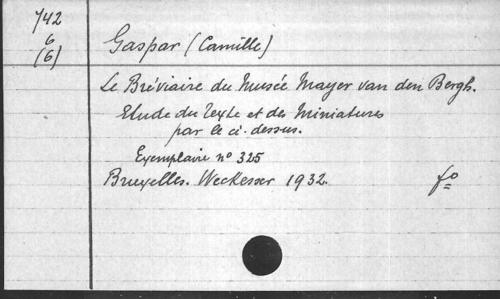 742
6
(6)
Gaspar (Camille)
Le Bréviaire du Musée Mayer van den Bergh.
Etude du Texte et des Miniatures
par le ci-dessus.
Exemplaire nº 325
Bruxelles. Weckesser 1932. fº